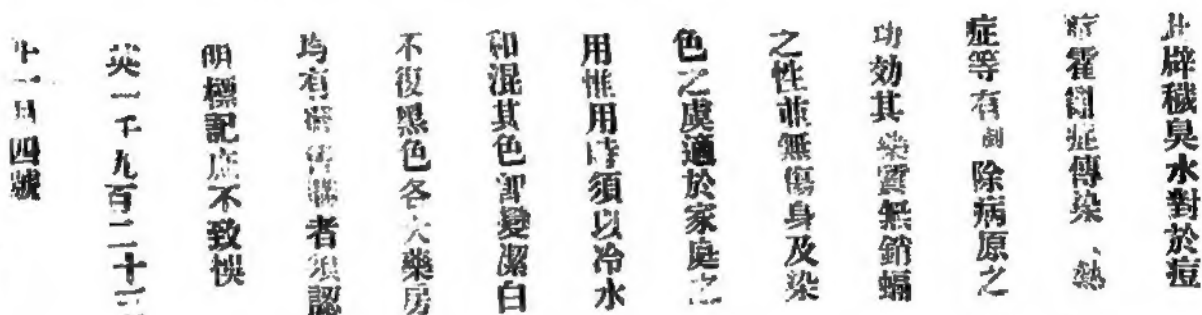 此辟穢臭水對於痘
症霍亂症傳染熱
症等有剷除病原之
功効其藥質無銷蝕
之性並無傷身及染
色之虞適於家庭之
用惟用時須以冷水
和混其色卽變潔白
不復黑色各大藥房
均有購者須認
明標記庶不致悞
英一千九百二十三
十一月四號